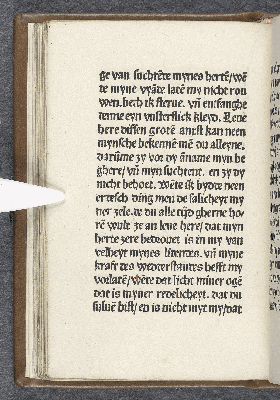 ge van suchtẽte mynes hertẽ/wẽ
te myne vyãte latẽ my nicht rou
wen. hech ik sterue. vñ entfanghe
tenne eyn vnsterflick kleyd. Leue
here dissen grotẽ anxst kan neen
mynsche bekennẽ mẽ du alleyne.
darũme zy vor dy ãname myn be
ghere/vñ myn suchtent. en zy dy
nicht behoet. Wẽte ik bydde neen
ertesch ding men de salicheyt my
ner zele. de du alle tijd gherne ho
rẽ wult ze an leue here/dat myn
herte zere bedrouet is in my van
velheyt mynes lidentes. vñ myne
kraft des wedderstantes hefft my
vorlatẽ/wẽte dat licht miner ogẽ
dat is myner redelicheyt. dat du
sulue bist/en is nicht myt my/dat